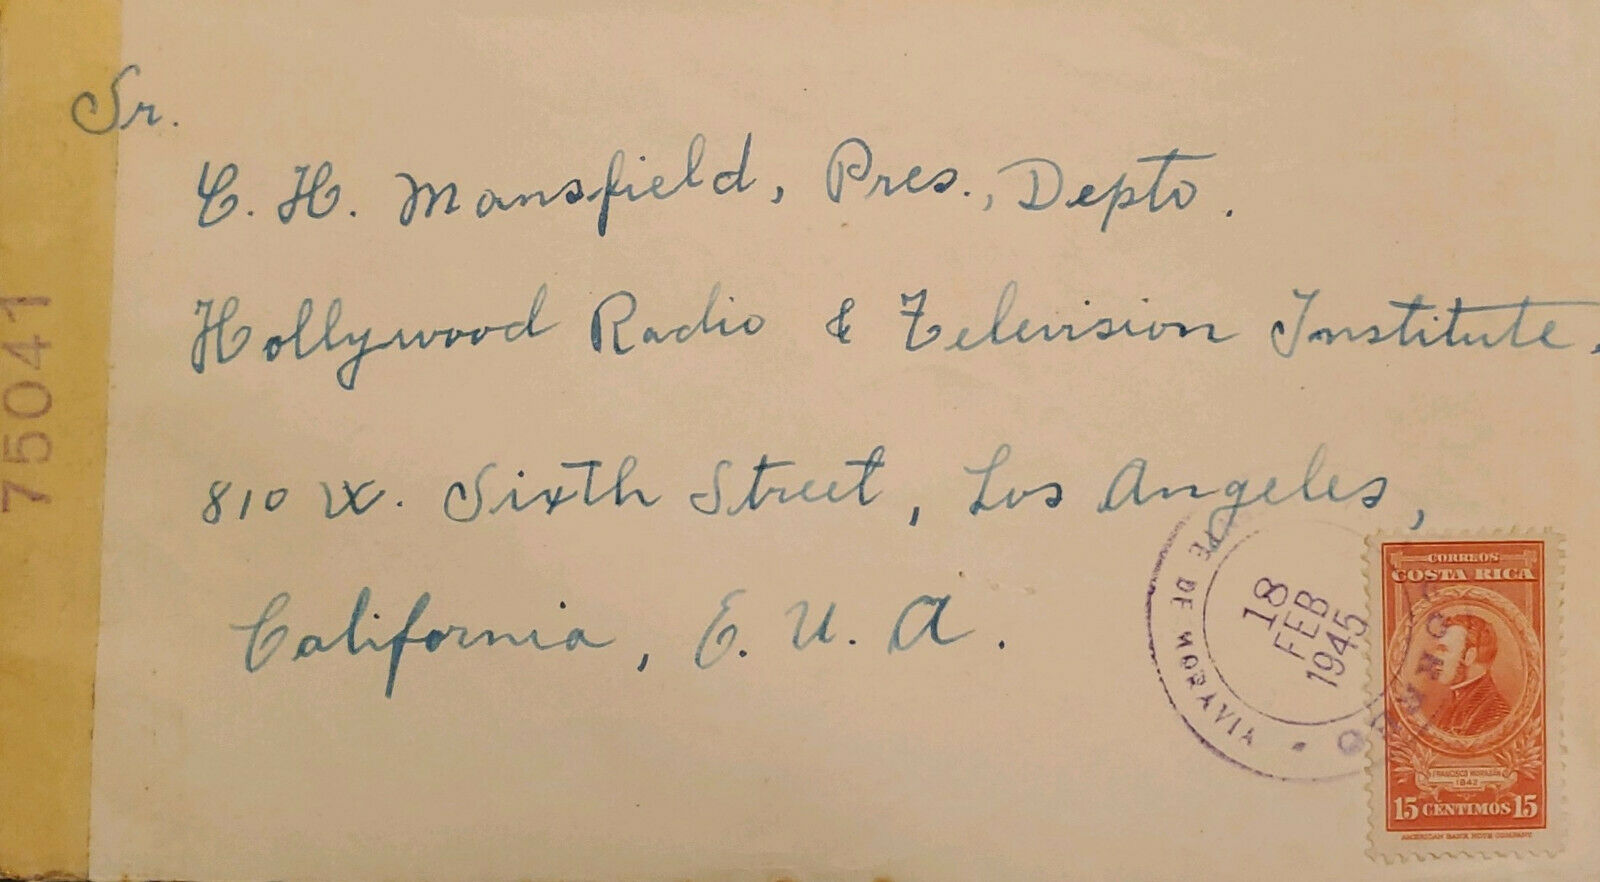 Sr.
C. H. Mansfield, Pres., Depto.
Hollywood Radio & Television Institute.
810 W. Sixth Street, Los Angeles,
California, E. U. A.
75041
DE MORAVIA
18
FEB
1945
CORREOS
COSTA RICA
FRANCISCO MORAZÁN
1842
15 CENTIMOS 15
AMERICAN BANK NOTE COMPANY